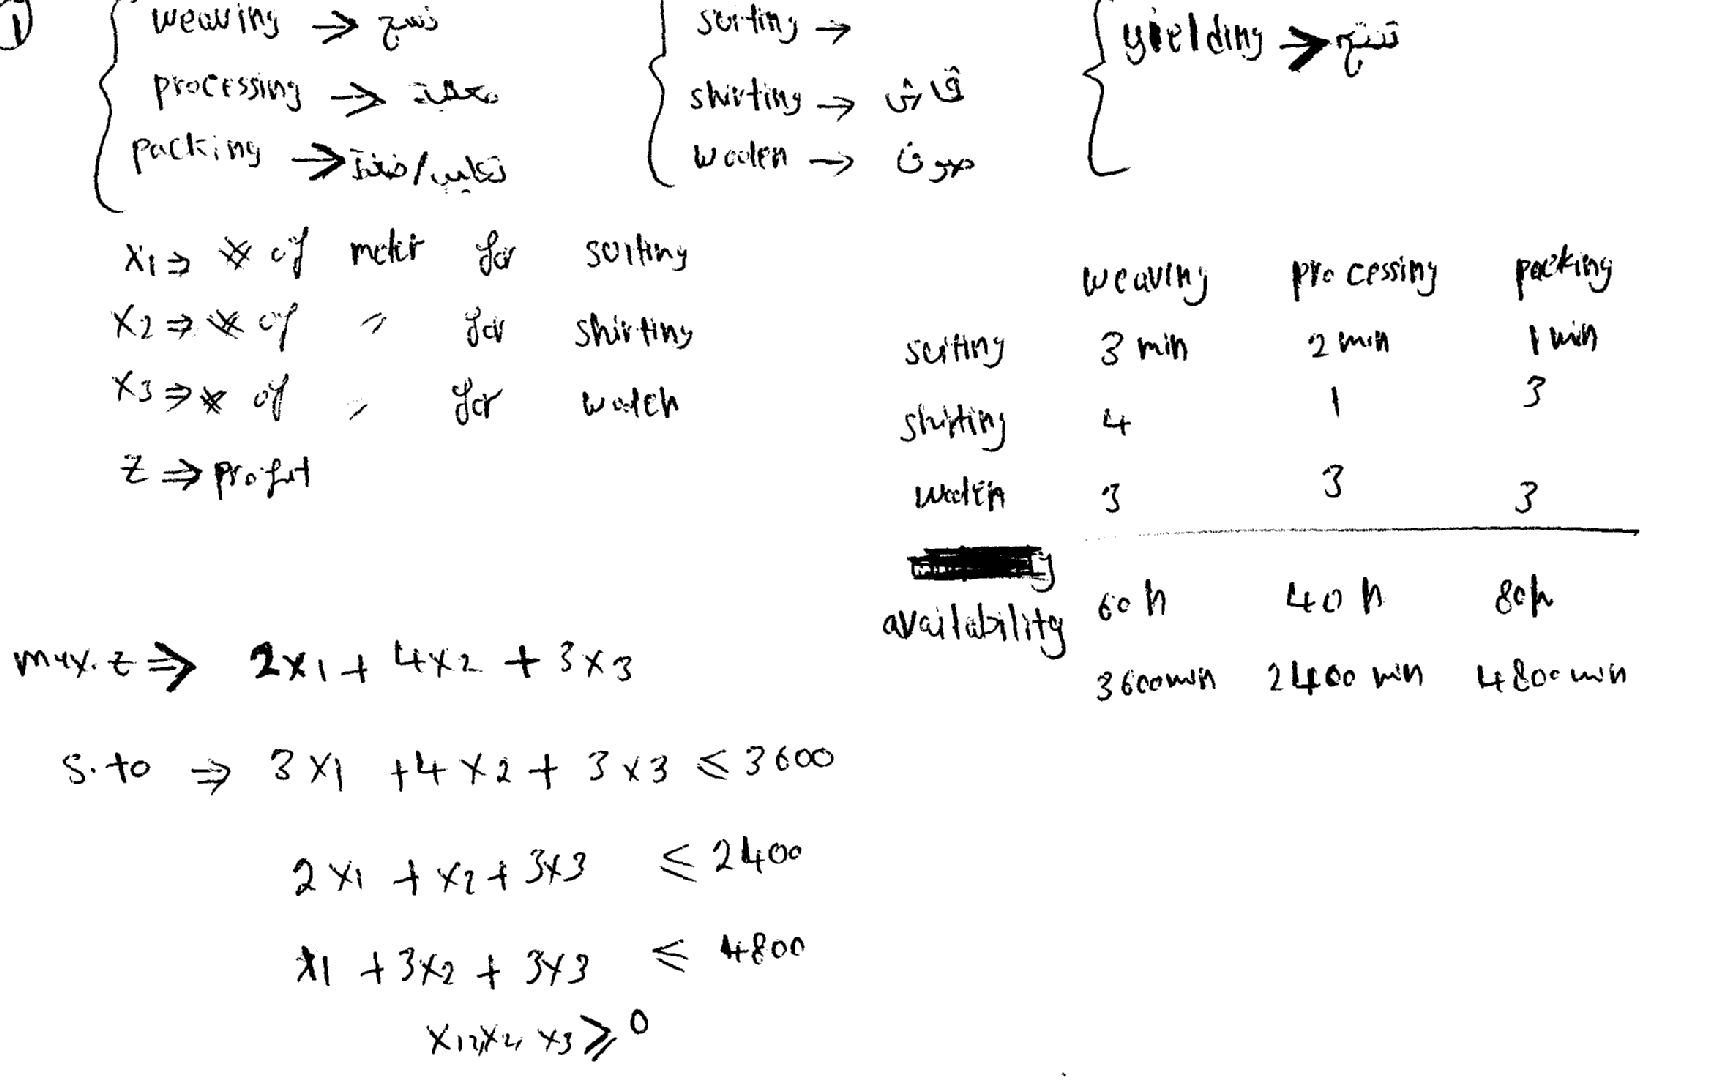 1
weaving → نسج
processing → معالجة
packing → تعليب/ضغط
suiting →
shirting → قماش
woolen → صوف
yielding → تنتج
X1 ⇒ # of meter for suiting
X2 ⇒ # of 〃 for shirting
X3 ⇒ # of 〃 for woolen
Z ⇒ profit
weaving processing packing
suiting 3 min 2 min 1 min
shirting 4 1 3
woolen 3 3 3
availability 60 h 40 h 80h
3600 min 2400 min 4800 min
max. Z ⇒ 2X1 + 4X2 + 3X3
S. to ⇒ 3X1 + 4X2 + 3X3 ≤ 3600
2X1 + X2 + 3X3 ≤ 2400
X1 + 3X2 + 3X3 ≤ 4800
X1, X2, X3 ≥ 0